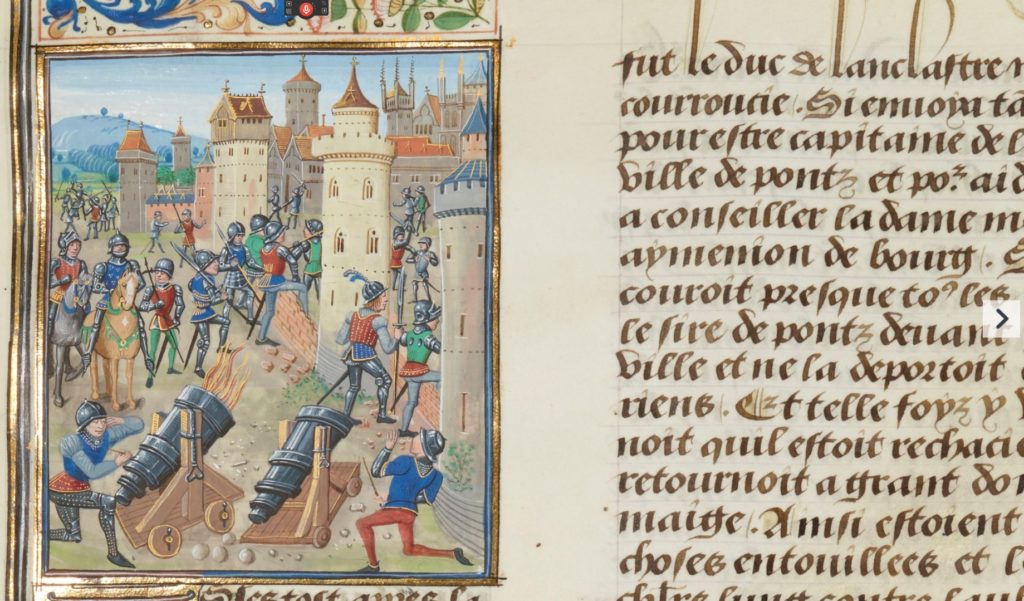 fut le duc de lanclastre
courroucie. Si enuoya
pour estre capitaine de
ville de pontz et po.ʳ
a conseiller la dame
aymenion de bourg.
couroit presque toꝰ les
le sire de pontz deuant
ville et ne la deportoit
riens. Et telle foyz y
noit quil estoit rechacie
retournoit a grant
maige. Ainsi estoient
choses entouillees et
lung contre